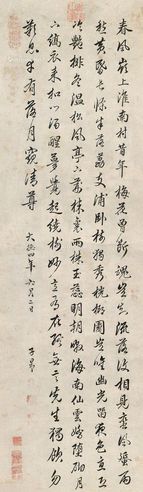 春風嶺上淮南村昔年梅花曾斷魂豈知流落復相見蠻風蜑雨
愁黃昏長條半落荔支浦臥樹獨秀桄榔園豈惟幽光留夜色直恐
冷艷排冬溫松風亭下荊棘裏兩株玉蕊明朝暾海南仙雲嬌墮砌月
下縞衣來扣門酒醒夢覺起繞樹妙意有在終無言先生獨飲勿
歎息幸有落月窺清尊
大德四年六月二日
子昂